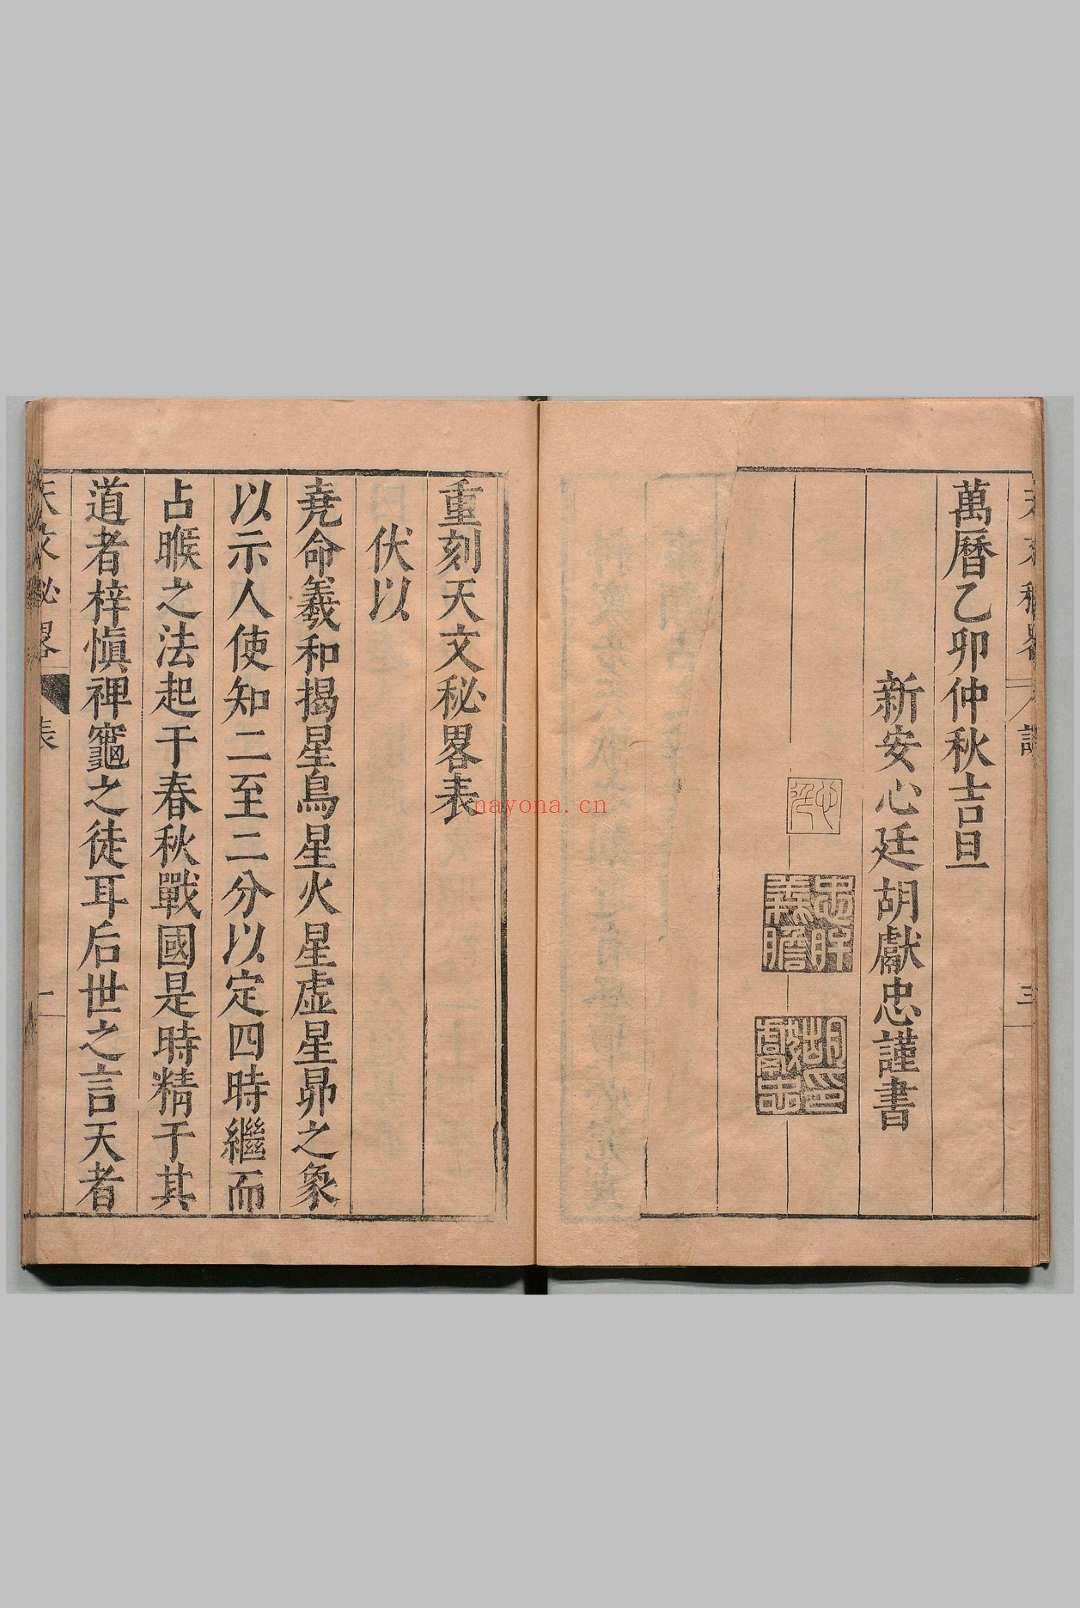 萬曆乙卯仲秋吉旦
新安心廷胡獻忠謹書
重刻天文秘畧表
伏以
堯命羲和揭星鳥星火星虛星昴之象
以示人使知二至二分以定四時繼而
占㬋之法起于春秋戰國是時精于其
道者梓愼裨竈之徒耳后世之言天者
天文秘畧 表 一
nayona.cn